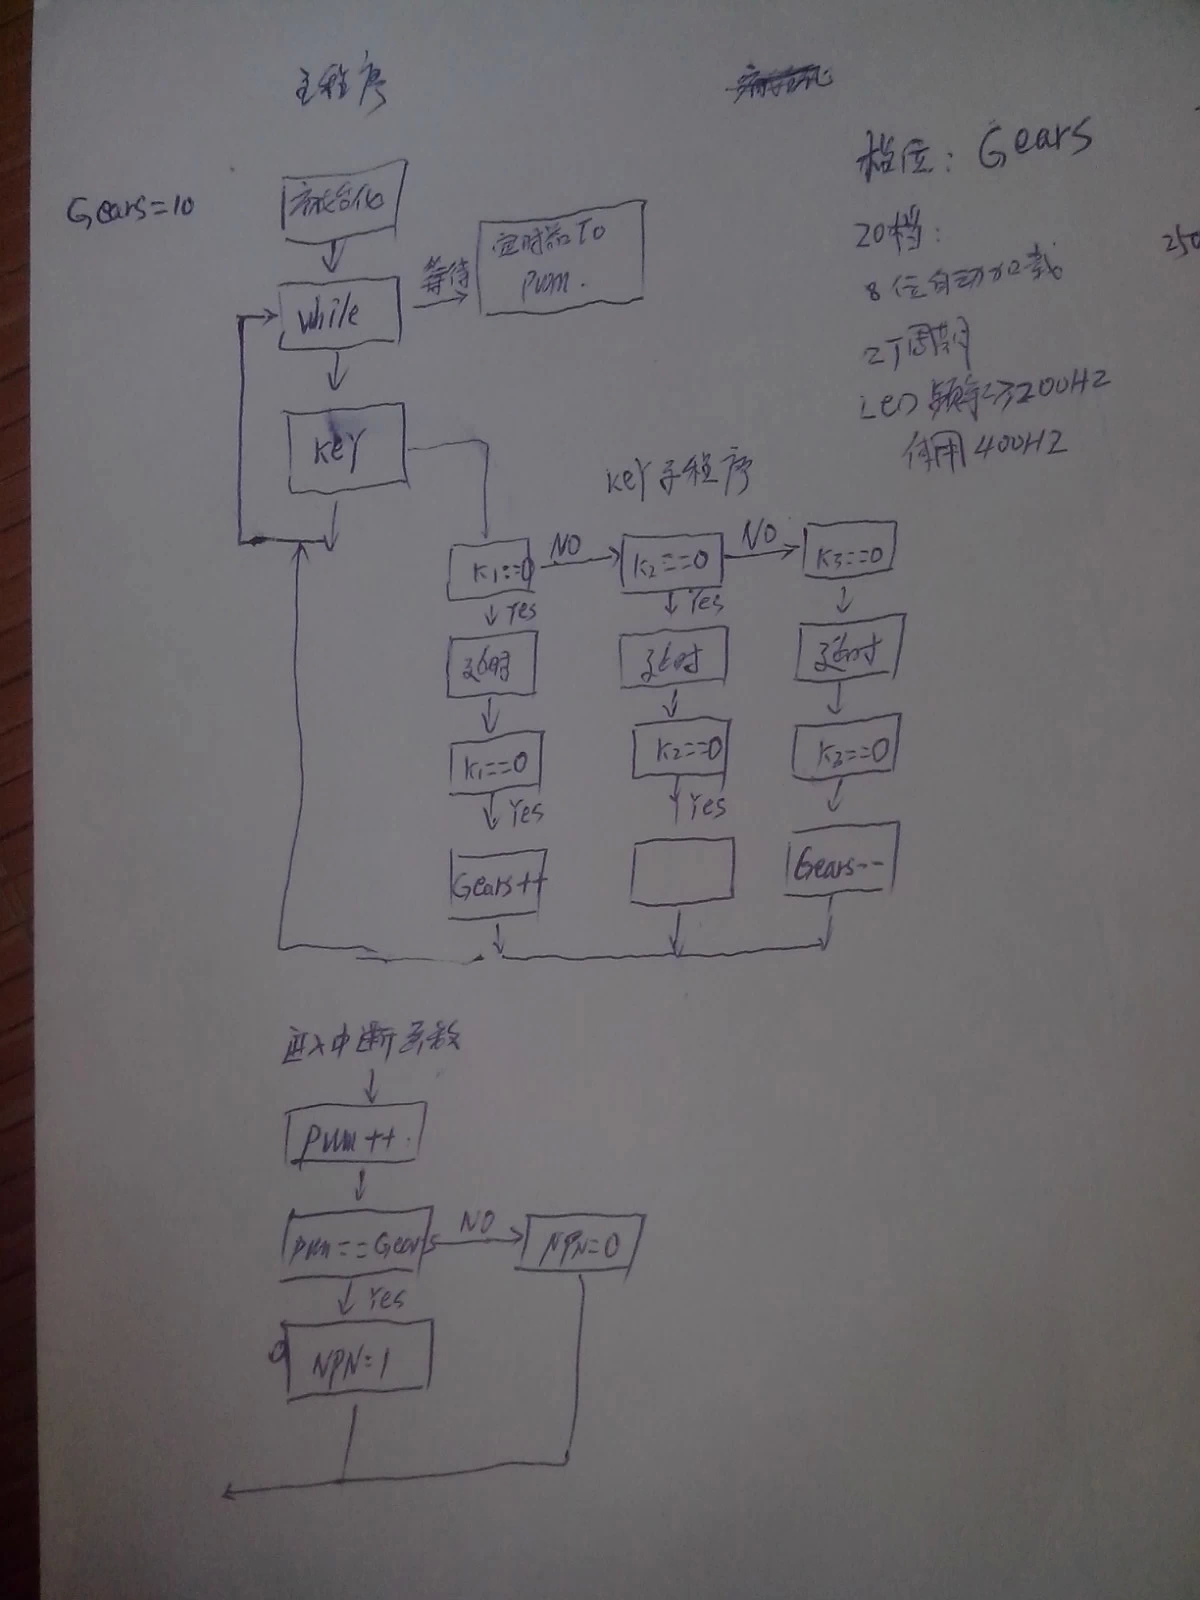 主程序
档位: Gears
Gears=10
初始化
20档:
定时器T0
pwm.
等待
250
8位自动加载
while
2T周期
LED频率≥200HZ
使用400HZ
KEY
KEY子程序
K1==0
NO
K2==0
NO
K3==0
Yes
Yes
延时
延时
延时
K1==0
K2==0
K3==0
Yes
Yes
Gears++
Gears--
进入中断
pwm++.
pwm==Gears
NO
NPN=0
Yes
NPN=1